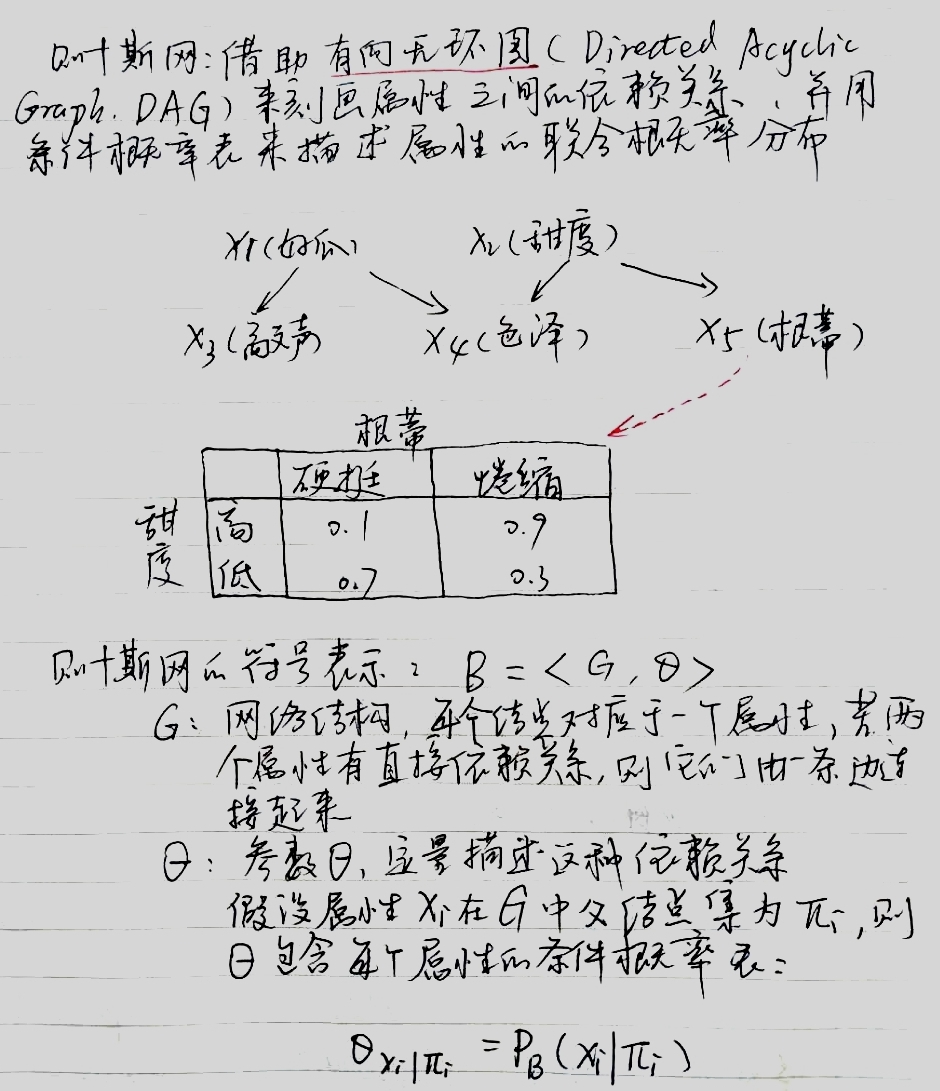 贝叶斯网:借助有向无环图(Directed Acyclic
Graph. DAG)来刻画属性之间的依赖关系,并用
条件概率表来描述属性的联合概率分布
x1(好瓜) x2(甜度)
x3(敲声 x4(色泽) x5(根蒂)
根蒂
硬挺 蜷缩
甜度 高 0.1 0.9
低 0.7 0.3
贝叶斯网的符号表示: B = < G, θ >
G: 网络结构,每个结点对应于一个属性,若两
个属性有直接依赖关系,则它们由一条边连
接起来
θ: 参数θ,定量描述这种依赖关系
假设属性xi在G中父结点集为πi,则
θ包含每个属性的条件概率表:
θxi|πi = PB(xi|πi)